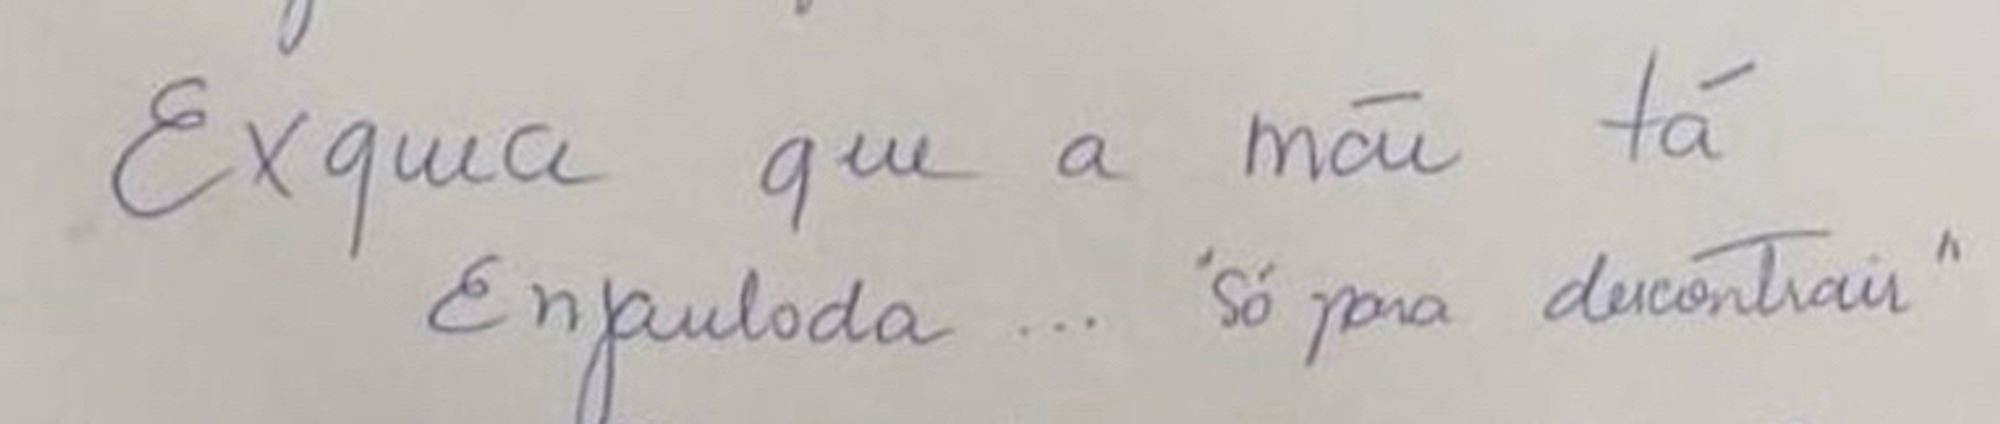 Exquia que a mãe tá
Enjaulada... "Só para descontrair"